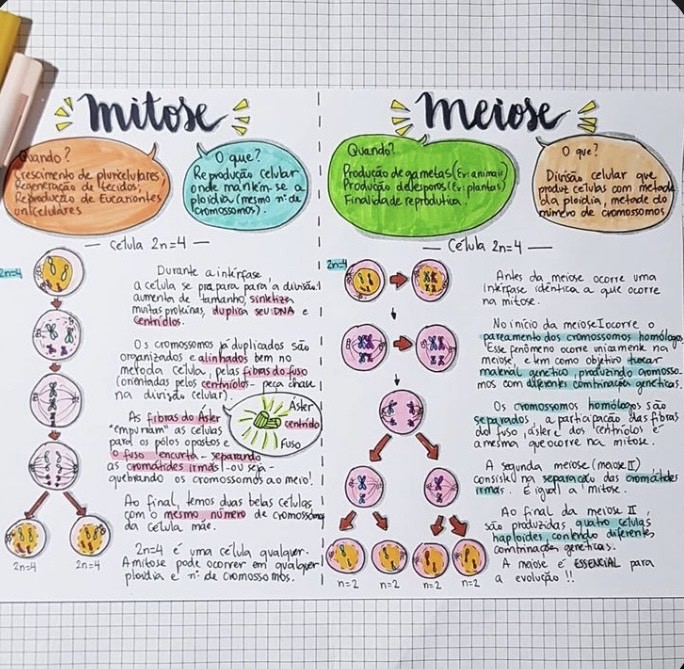 mitose
Quando?
Crescimento de pluricelulares;
Regeneração de tecidos;
Reprodução de Eucariontes
unicelulares
O que?
Reprodução celular
onde mantém-se a
ploidia (mesmo nº de
cromossomos).
— célula 2n=4 —
2n=4
Durante a intérfase
a célula se prepara para a divisão:
aumenta de tamanho, sintetiza
muitas proteínas, duplica seu DNA e
centríolos.
Os cromossomos já duplicados são
organizados e alinhados bem no
meio da célula, pelas fibras do fuso
(orientadas pelos centríolos - peça chave
na divisão celular).
Áster
centríolo
Fuso
As fibras do Áster
"empurram" as células
para os pólos opostos e
o fuso encurta - separando
as cromátides irmãs! - ou seja -
quebrando os cromossomos ao meio!
Ao final, temos duas belas células
com o mesmo número de cromossomos
da célula mãe.
2n=4 2n=4
2n=4 é uma célula qualquer.
A mitose pode ocorrer em qualquer
ploidia e nº de cromossomos.
Meiose
Quando?
Produção de gametas (Ex: animais)
Produção de esporos (Ex: plantas)
Finalidade reprodutiva.
O que?
Divisão celular que
produz células com metade
da ploidia, metade do
número de cromossomos
— Célula 2n=4 —
2n=4
Antes da meiose ocorre uma
intérfase idêntica a que ocorre
na mitose.
No início da meiose I ocorre o
pareamento dos cromossomos homólogos.
Esse fenômeno ocorre unicamente na
meiose, e tem como objetivo trocar
material genético, produzindo cromosso-
mos com diferentes combinações genéticas.
Os cromossomos homólogos são
separados, a participação das fibras
do fuso, áster e dos centríolos é
a mesma que ocorre na mitose.
A segunda meiose (meiose II)
consiste na separação das cromátides
irmãs. É igual a mitose.
Ao final da meiose II,
são produzidas, quatro células
haploides, contendo diferentes
combinações genéticas.
A meiose é ESSENCIAL para
a evolução!!
n=2 n=2 n=2 n=2